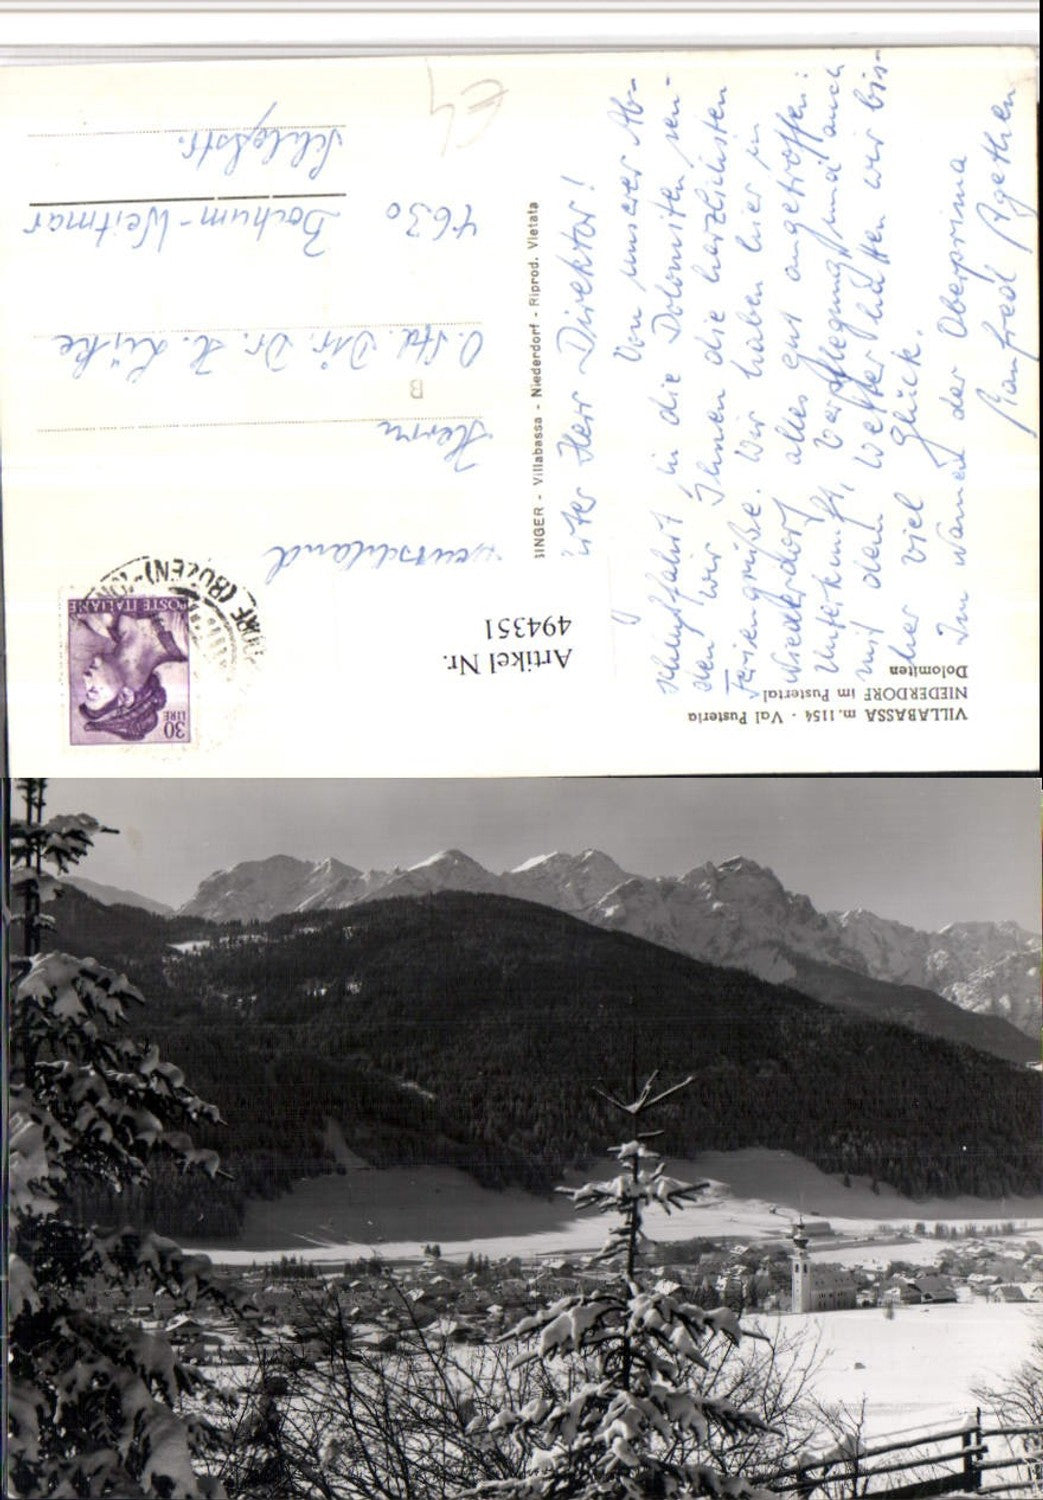 VILLABASSA m. 1154 - Val Pusteria
NIEDERDORF im Pustertal
Dolomiten
Herr Direktor!
Von unserer Ab-
schlußfahrt in die Dolomiten sen-
den wir Ihnen die herzlichsten
Feriengrüße. Wir haben hier in
Niederdorf alles gut angetroffen:
Unterkunft, Verpflegung und auch
mit dem Wetter hatten wir bis-
her viel Glück.
Im Namen der Oberprima
Manfred Agethen
SINGER - Villabassa - Niederdorf - Riprod. Vietata
Artikel Nr.
494351
30
LIRE
POSTE ITALIANE
(BOZEN)
Deutschland
Herrn
B
O. Std. Dir. Dr. H. Lüke
4630 Bochum-Weitmar
Schloßstr.